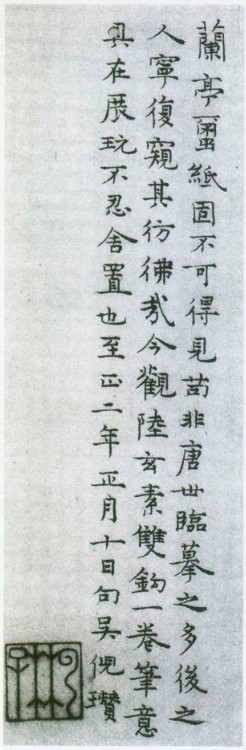 蘭亭蠒紙固不可得見苟非唐世臨摹之多後之
人寧復窺其彷彿哉今觀陸玄素雙鈎一卷筆意
具在展玩不忍舍置也至正二年正月十日句吳倪瓚